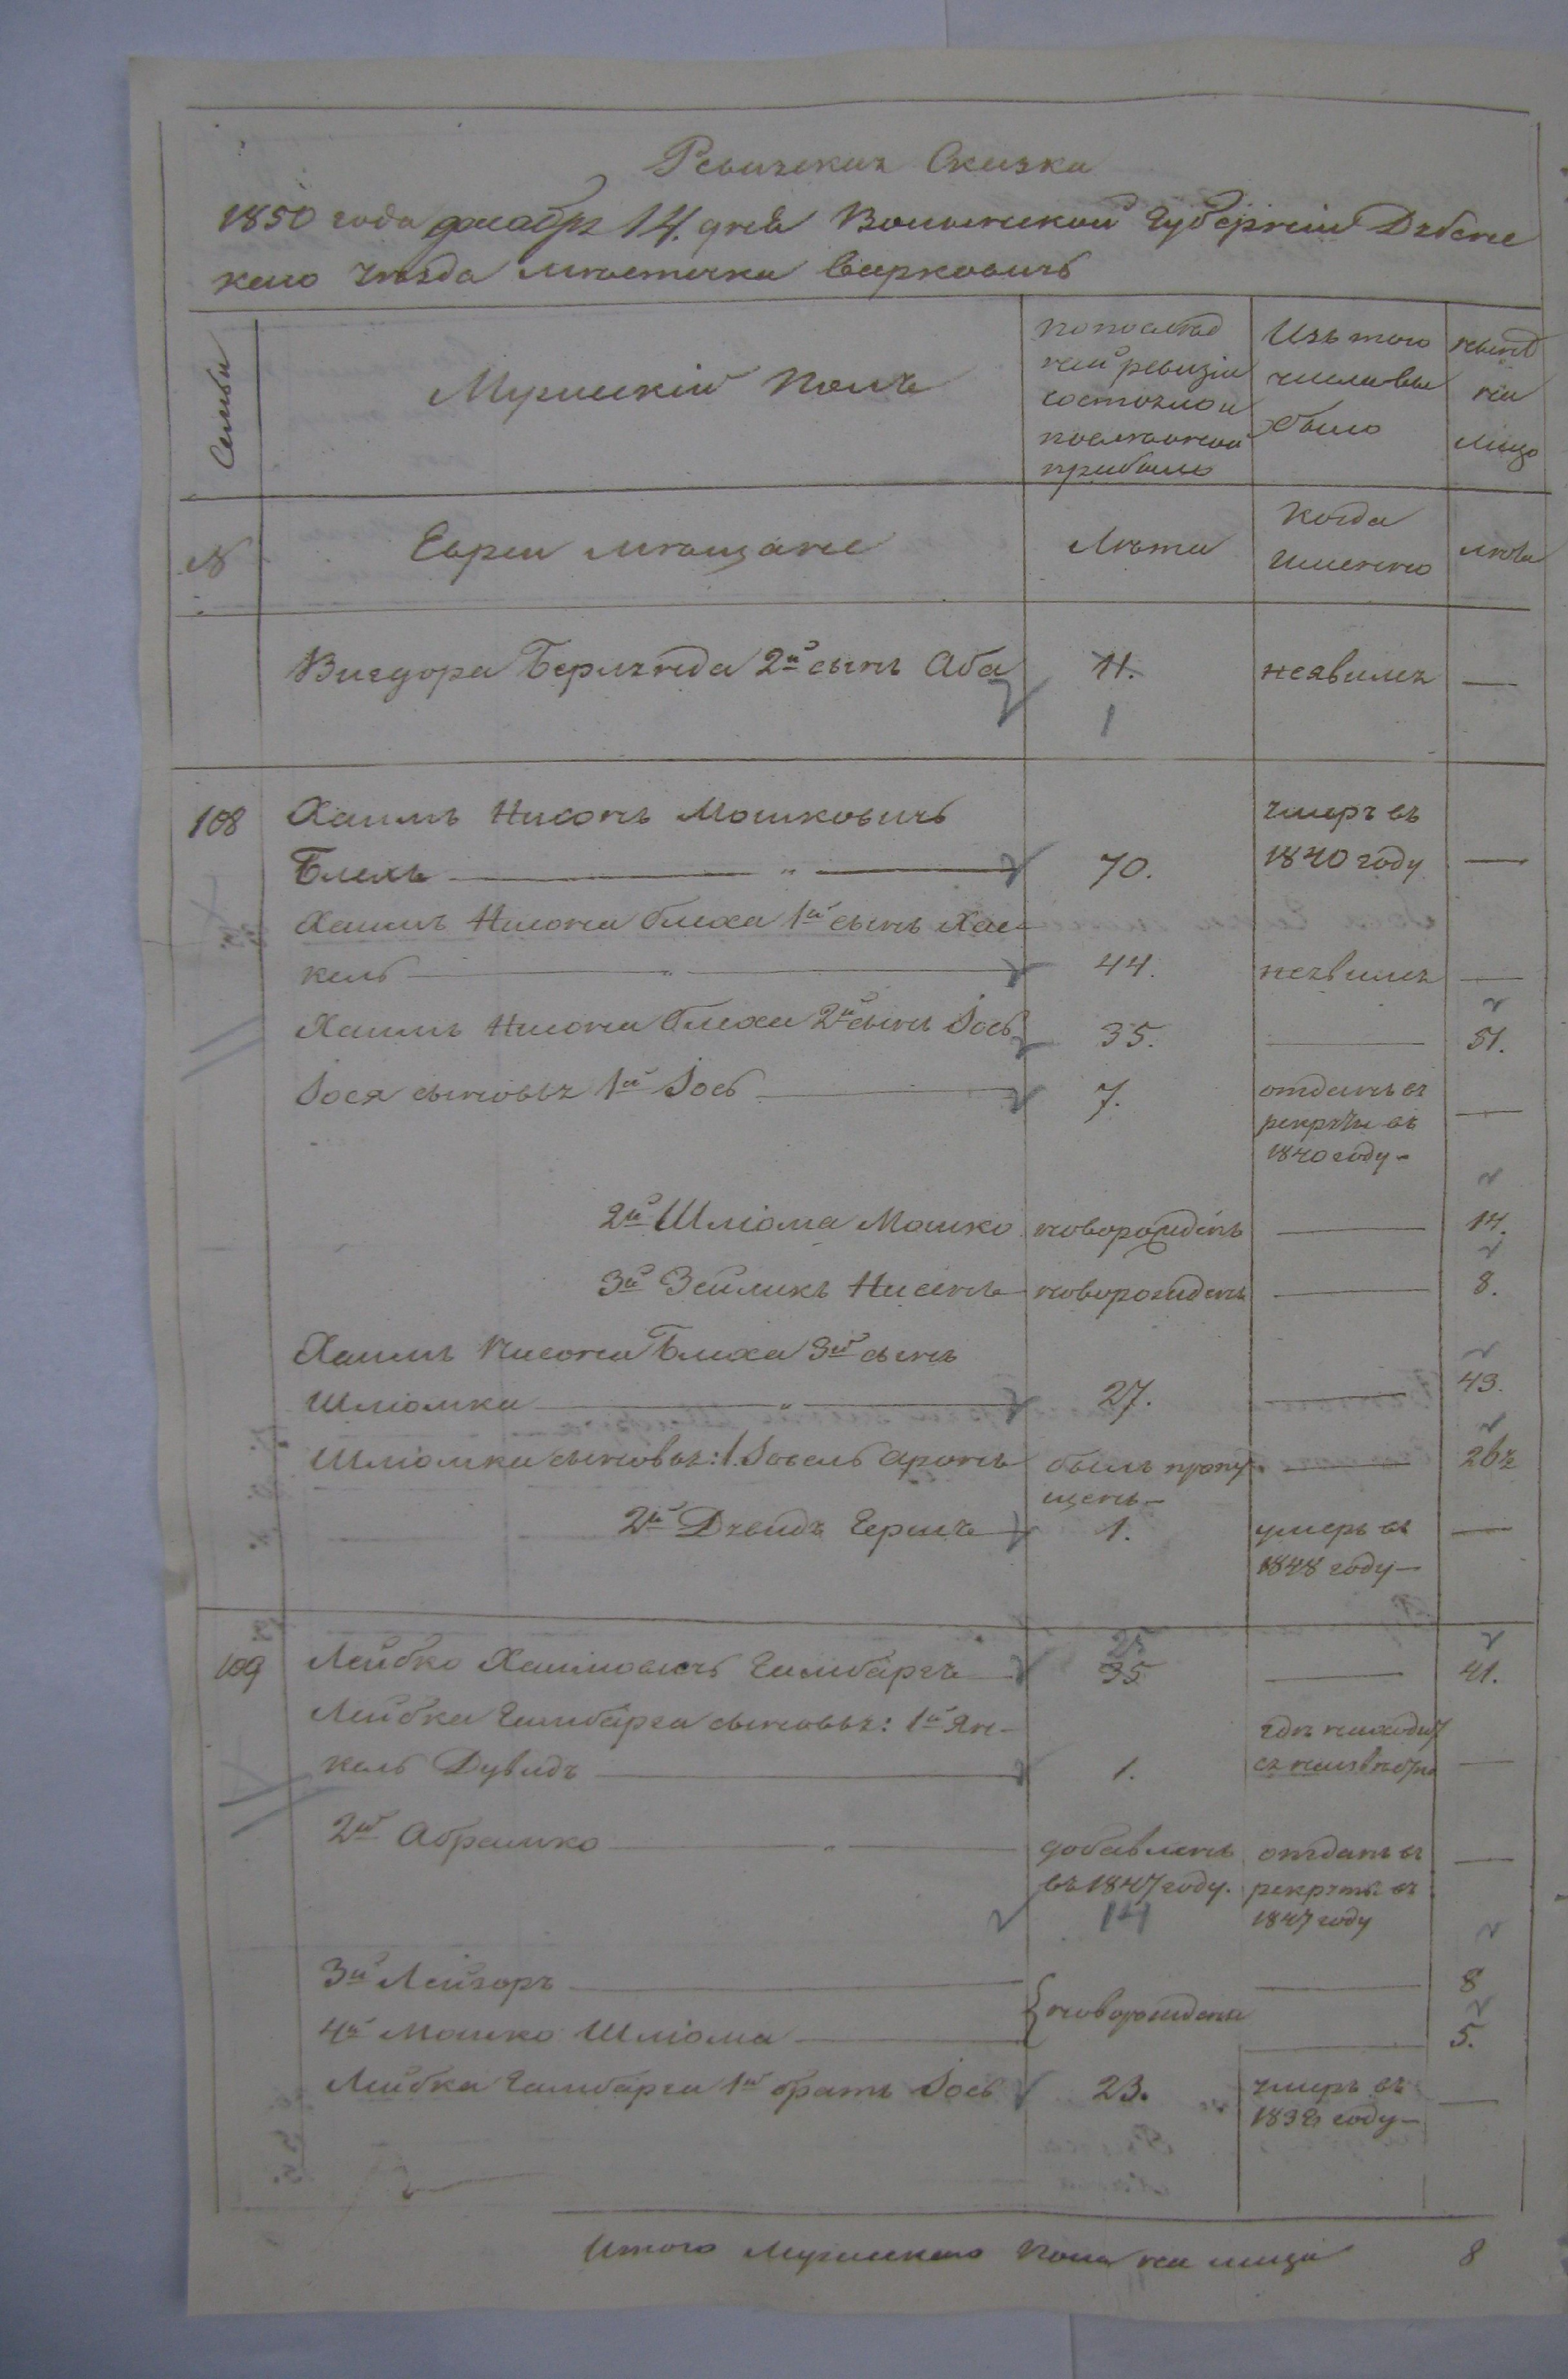 Ревизская Сказка
1850 года декабря 14. дня Волынской Губернiи Дубенс
каго уѣзда мѣстечка Варковичь
Семьи
Мужескiй Полъ
По послѣд
ней ревизiи
состояло и
послѣ оной
прибыло
Изъ того
числа вы
было
нынѣ
на
лицо
№
Евреи мѣщане
Лѣта
Когда
именно
лѣта
Вигдора Берлянда 2й сынъ Аба
11.
1
неявился
108
Хаимъ Нисонъ Мошковичь
умеръ въ
Блехъ
70.
1840 году
Хаимъ Нисона Блеха 1й сынъ Хас
кель
44.
неявился
Хаимъ Нисона Блеха 2й сынъ Iось
35.
51.
Iося сыновья 1й Iось
7.
отданъ въ
рекруты въ
1840 году
2й Шлiома Мошко
новорожденъ
14.
3й Зейликъ Нисенъ
новорожденъ
8.
Хаимъ Нисона Блеха 3й сынъ
Шлiомка
27.
43.
Шлiомки сыновья: 1. Iосель Аронъ
былъ пропу
щенъ
26
2й Дувидъ Гершъ
1.
умеръ въ
1848 году
109
Лейбко Хаимовичь Гимбаргъ
25
35
41.
Лейбка Гимбарга сыновья: 1й Ян-
кель Дувидъ
1.
гдѣ находит
ся неизвѣстно
2й Абрамко
добавленъ
въ 1847 году.
14
отданъ въ
рекруты въ
1847 году
3й Лейзоръ
новорожденны
8
4й Мошко Шлiома
5.
Лейбка Гимбарга 1й братъ Iось
23.
умеръ въ
году
Итого мужескаго пола на лицо
8